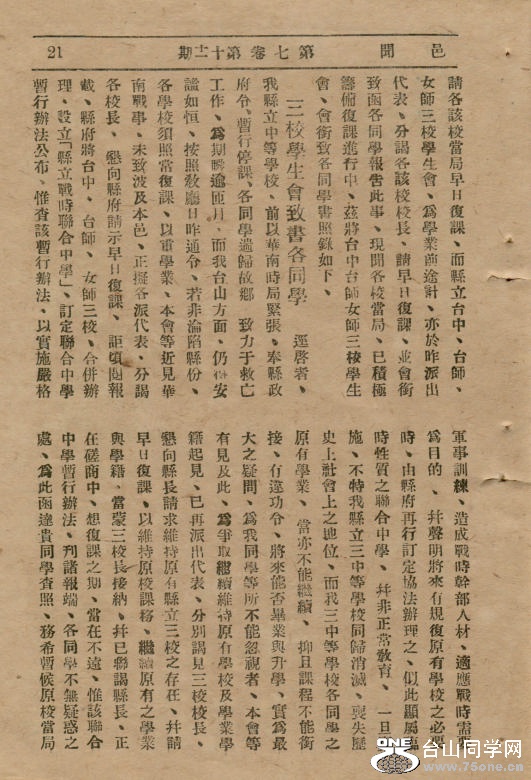 邑聞
第七卷第十二期
21
請各該校當局早日復課、而縣立台中、台師、
女師三校學生會、爲學業前途計、亦於昨派出
代表、分謁各該校校長、請早日復課、並會銜
致函各同學報告此事、現聞各校當局、已積極
籌備復課進行中、茲將台中台師女師三校學生
會、會銜致各同學書照錄如下、
三校學生會致書各同學
逕啓者、
我縣立中等學校、前以華南時局緊張、奉縣政
府令、暫行停課、各同學遄歸故鄉、致力于救亡
工作、爲期瞬逾匝月、而我台山方面、仍得安
謐如恒、按照敎廳日昨通令、若非淪陷縣份、
各學校須照常復課、以重學業、本會等近見華
南戰事、未致波及本邑、正擬各派代表、分謁
各校長、懇向縣府請示早日復課、詎頃閱報
載、縣府將台中、台師、女師三校、合併辦
理、設立「縣立戰時聯合中學」、訂定聯合中學
暫行辦法公布、惟查該暫行辦法、以實施嚴格
軍事訓練、造成戰時幹部人材、適應戰時需
爲目的、幷聲明將來有規復原有學校之必要
時、由縣府再行訂定協法辦理之、似此顯屬
時性質之聯合中學、幷非正常敎育、一旦
施、不特我縣立三中等學校同歸消滅、喪失歷
史上社會上之地位、而我三中等學校各同學之
原有學業、當亦不能繼續、抑且課程不能銜
接、有違功令、將來能否畢業與升學、實爲最
大之疑問、爲我同學等所不能忽視者、本會等
有見及此、爲爭取繼續維持原有學校及學業學
籍起見、已再派出代表、分別謁見三校校長、
懇向縣長請求維持原有縣立三校之存在、幷請
早日復課、以維持原校課務、繼續原有之學業
與學籍、當蒙三校長接納、幷已聯謁縣長、正
在磋商中、想復課之期、當在不遠、惟該聯合
中學暫行辦法、刋諸報端、各同學不無疑惑之
處、爲此函達貴同學查照、務希暫候原校當局
ONE
台山同学网
www.75one.cn